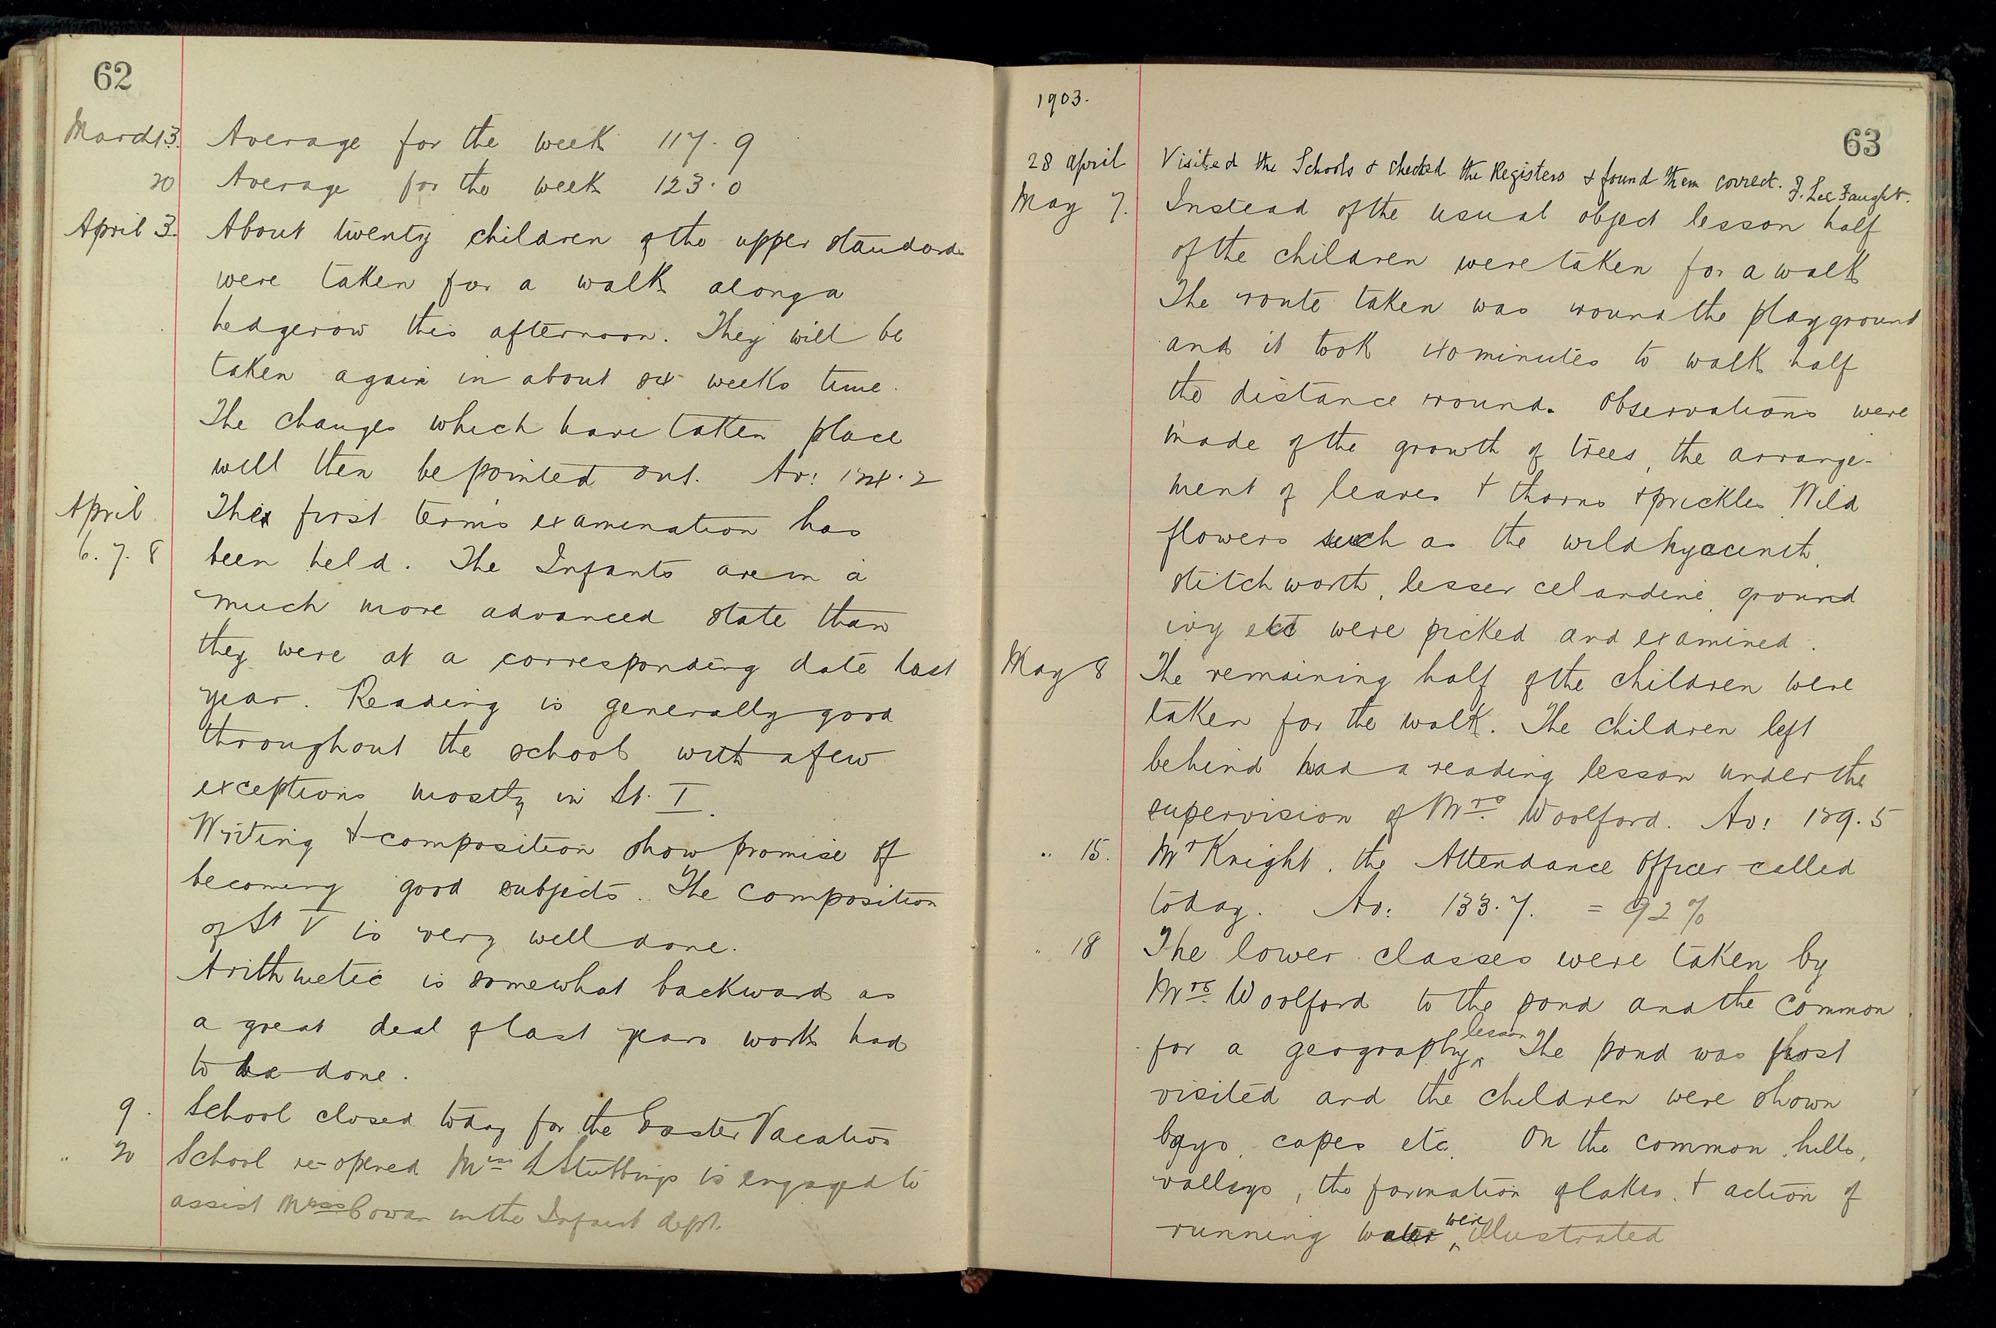 62
March 13. Average for the week 117.9
20 Average for the week 123.0
April 3. About twenty children of the upper standards
were taken for a walk along a
hedgerow this afternoon. They will be
taken again in about six weeks time.
The changes which have taken place
will then be pointed out. Av: 124.2
April The first term's examination has
6. 7. 8 been held. The Infants are in a
much more advanced state than
they were at a corresponding date last
year. Reading is generally good
throughout the school with a few
exceptions mostly in St. I.
Writing & composition show promise of
becoming good subjects. The composition
of St V is very well done.
Arithmetic is somewhat backward as
a great deal of last years work had
to be done.
9. School closed today for the Easter Vacation
" 20 School re-opened Stubbings is engaged to
assist Cowan in the Infant dept.
1903.
63
28 April Visited the Schools & checked the Registers & found them correct. F. Lee Faught.
May 7. Instead of the usual object lesson half
of the children were taken for a walk
The route taken was round the playground
and it took 40 minutes to walk half
the distance round. Observations were
made of the growth of trees, the arrange-
ment of leaves & thorns & prickles Wild
flowers such as the wild hyacinth,
stitchworth, lesser celandine, ground
ivy ect were picked and examined.
May 8 The remaining half of the children were
taken for the walk. The children left
behind had a reading lesson under the
supervision of Mrs. Woolford. Av: 129.5
" 15. Mr Knight, the Attendance Officer called
today. Av: 133.7. = 92%
" 18 The lower classes were taken by
Mrs. Woolford to the pond and the common
for a geography lesson The pond was first
visited and the children were shown
bays, capes etc. On the common, hills,
valleys, the formation of lakes, & action of
running water were illustrated